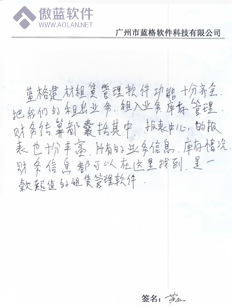 傲蓝软件
WWW.AOLAN.NET
广州市蓝格软件科技有限公司
蓝格建材租赁管理软件功能十分齐全,
把我们的租出业务、租入业务库存管理
财务结算都囊括其中,报表中心的报
表也十分丰富,所有的业务信息、库存情况
财务信息都可以在这里找到,是一
款超值的租赁管理软件。
签名: